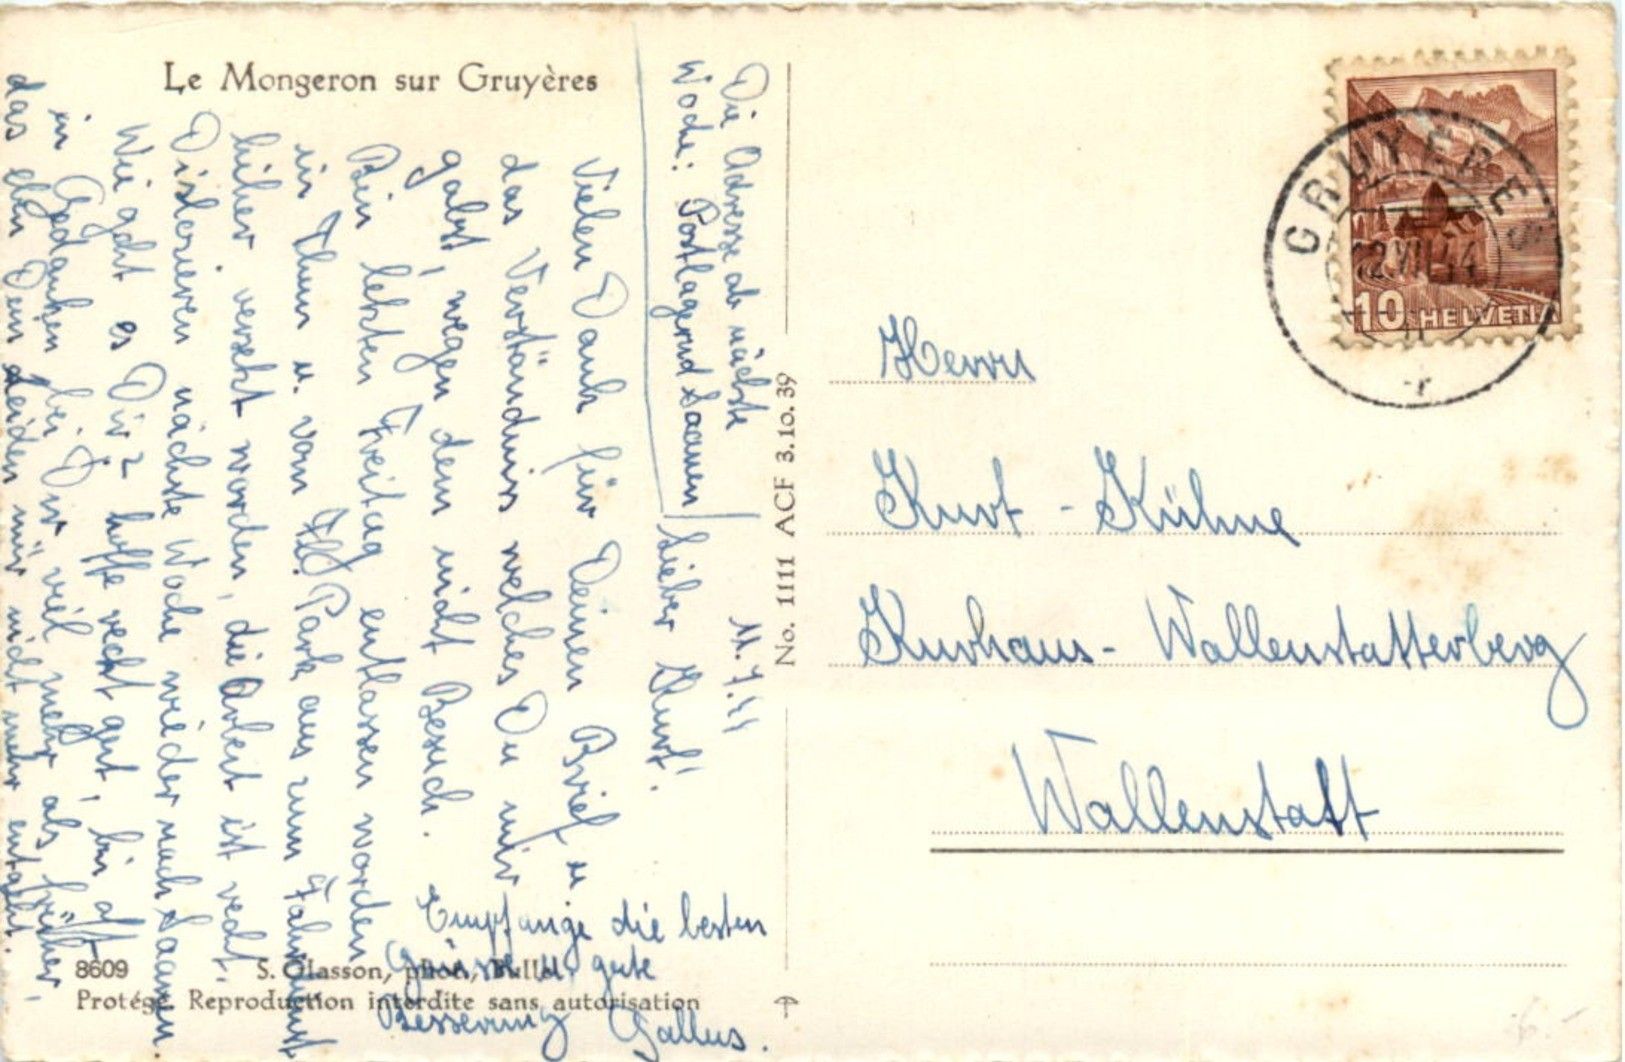 Le Mongeron sur Gruyères
Die Adresse ab nächste
Woche: Postlagernd Saanen
11.7.44
Lieber Kurt!
Vielen Dank für Deinen Brief u
das Verständnis welches Du mir
gabst, wegen dem nicht Besuch.
Bin letzten Freitag entlassen worden
in Thun u. vom Park aus zum
hiher versetzt worden, die Arbeit ist recht.
Dislozieren nächste Woche wieder nach Saanen.
Wie geht es Dir? hoffe recht gut, bin oft
in Gedanken bei Dir viel mehr als früher,
das eben Dein Leiden mir nicht mehr entgeht.
Empfange die besten
Grüsse u. gute
Besserung Gallus.
No. 1111 ACF 3.10.39
GRUYERES
12.VII.44
10 HELVETIA
Herrn
Kurt - Kühne
Kurhaus - Wallenstatterberg
Wallenstatt
8609 S. Glasson, phot., Bulle
Protégé. Reproduction interdite sans autorisation